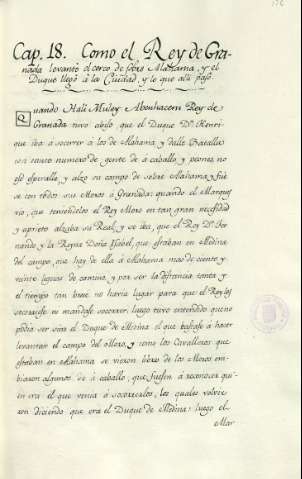 Cap. 18. Como el Rey de Gra-
nada levantó el cerco de sobre Alahama, y el
Duque llegó á la Ciudad, y lo que allí pasó.
Quando Hali Muley Abenhacem Rey de
Granada tuvo abiso, que el Duque Dn. Henri-
que iba á socorrer á los de Alahama y dalle Batalla
con tanto numero de gente de á caballo y peones, no
osó esperalle, y alzo su campo de sobre Alahama, y fué
se con todos sus Moros á Granada: quando el Marques
vio, que teniendolos el Rey Moro en tan gran necesidad
y aprieto alzaba su Real, y se iba, que el Rey Dn. Fer-
nando y la Reyna Doña Isabel, que estaban en Medina
del campo, que hay de ella á Alahama mas de ciento y
veinte leguas de camino, y por ser la distancia tanta y
el tiempo tan breve no havia lugar para que el Rey los
socorriese ni mandase socorrer, luego tuvo entendido que no
podia ser sino el Duque de Medina el que bastase á hacer
levantar el campo del Moro, y como los Cavalleros que
estaban en Alahama se vieron libres de los Moros em-
biaron algunos de á caballo, que fuesen á reconocer qui-
en era el que venia á socorrerlos, los quales volvie-
ron diciendo que era el Duque de Medina: luego el
Mar